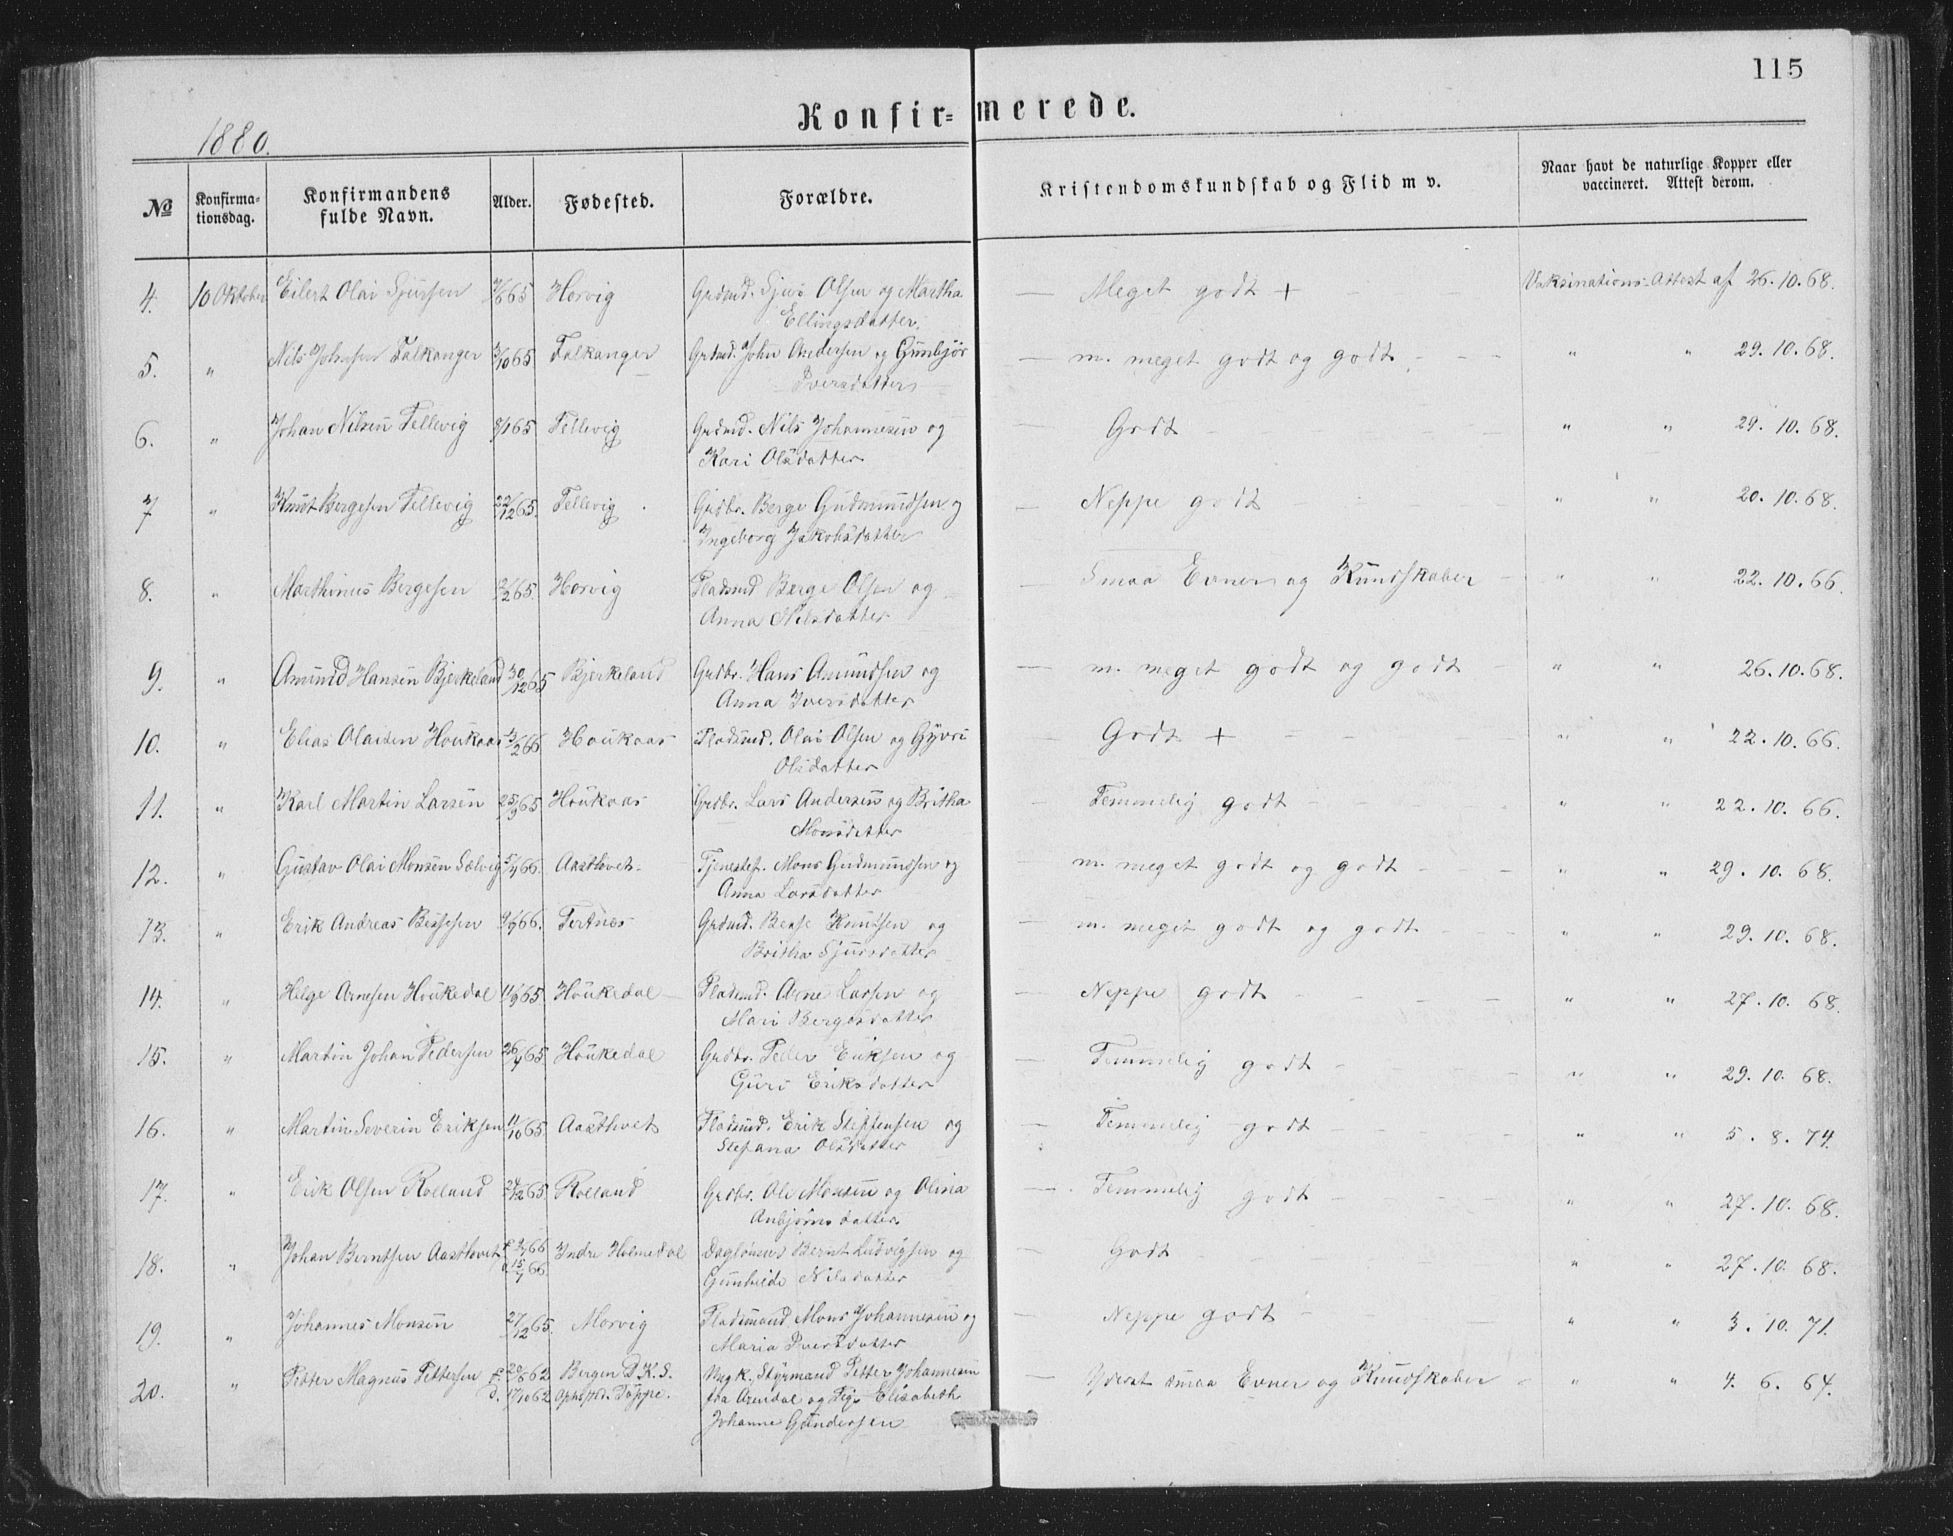 115
Konfir=merede.
1880.
№ Konfirma-tionsdag. Konfirmandens fulde Navn. Alder. Fødested. Forældre. Kristendomskundskab og Flid m v. Naar havt de naturlige Kopper eller vaccineret. Attest derom.
4. 10 Oktober Eilert Olai Sjursen Horvig Grdmd. Sjur Olsen og Martha — Meget godt + Vaksinations-Attest af 26.10.68.
Ellingsdatter.
5. " Nils Johnsen Falkanger 65 Falkanger Grdmd. John Andersen og Gunbjør — m. meget godt og godt " " 29.10.68.
Iversdatter
6. " Johan Nilsen Tellevig 65 Tellevig Grdmd. Nils Johannesen og — Godt " " 29.10.68.
Kari Olsdatter
7 " Knut Bergesen Tellevig 22/12 65. Tellevig Grdbr. Berge Gudmundsen og — Neppe godt " " 20.10.68.
Ingeborg Jakobsdatter
8. " Marthinus Bergesen 2/2 65. Horvig Pladsmd Berge Olsen og — Smaa Evner og Kundskaber " " 22.10.66.
Anna Nilsdatter
9. " Amund Hansen Bjerkeland 30/12 65 Bjerkeland Grdbr. Hans Amundsen og — m. meget godt og godt " " 26.10.68.
Anna Iversdatter
10. " Elias Olaisen Houkaas 66 Houkaas Pladsmd. Olai Olsen og Gyvri — Godt + " " 22.10.66.
Olsdatter
11. " Karl Martin Larsen 25/9 65 Houkaas Grdbr. Lars Andersen og Britha — Temmelig godt " " 22.10.66.
Monsdatter
12. " Gustav Olai Monsen Salvig 5/4 66. Aastvet Tjenestef. Mons Gudmundsen og — m. meget godt og godt " " 29.10.68.
Anna Larsdatter
13. " Erik Andreas Bessesen 66. Tertnæs Grdmd. Besse Knutsen og — m. meget godt og godt " " 29.10.68.
Britha Sjursdatter
14. " Helge Arnesen Houkedal 11/9 65. Houkedal Pladsmd. Arne Larsen og — Neppe godt " " 27.10.68.
Mari Bergesdatter
15. " Martin Johan Pedersen 65 Houkedal Grdbr. Peder Eriksen og — Temmelig godt " " 29.10.68.
Guri Eriksdatter
16. " Martin Severin Eriksen 11/10 65. Aasthvet Pladsmd. Erik Steffensen og — Temmelig godt " " 5.8.74.
Stefana Olsdatter
17. " Erik Olsen Rolland 24/12 65. Rolland Grdbr. Ole Monsen og Olina — Temmelig godt " " 27.10.68.
Anbjørnsdatter
18. " Johan Berntsen Aasthvet 66 Indre Holmedal Daglønner Bernt Ludvigsen og — Godt " " 27.10.68.
66 Gunhilde Nilsdatter
19. " Johannes Monsen 27/12 65. Morvig Pladsmand Mons Johannesen og — Neppe godt " " 3.10.71.
Maria Iversdatter
20. " Petter Magnus Pettersen f. 62 Bergen D.K.S. Ungk. Styrmand Petter Johannesen Yderst smaa Evner og Kundskaber " " 4.6.64.
d. 17/10 62 Ophostr. Toppe. fra Arendal og Pige Elisabeth
Johanne Gundersen